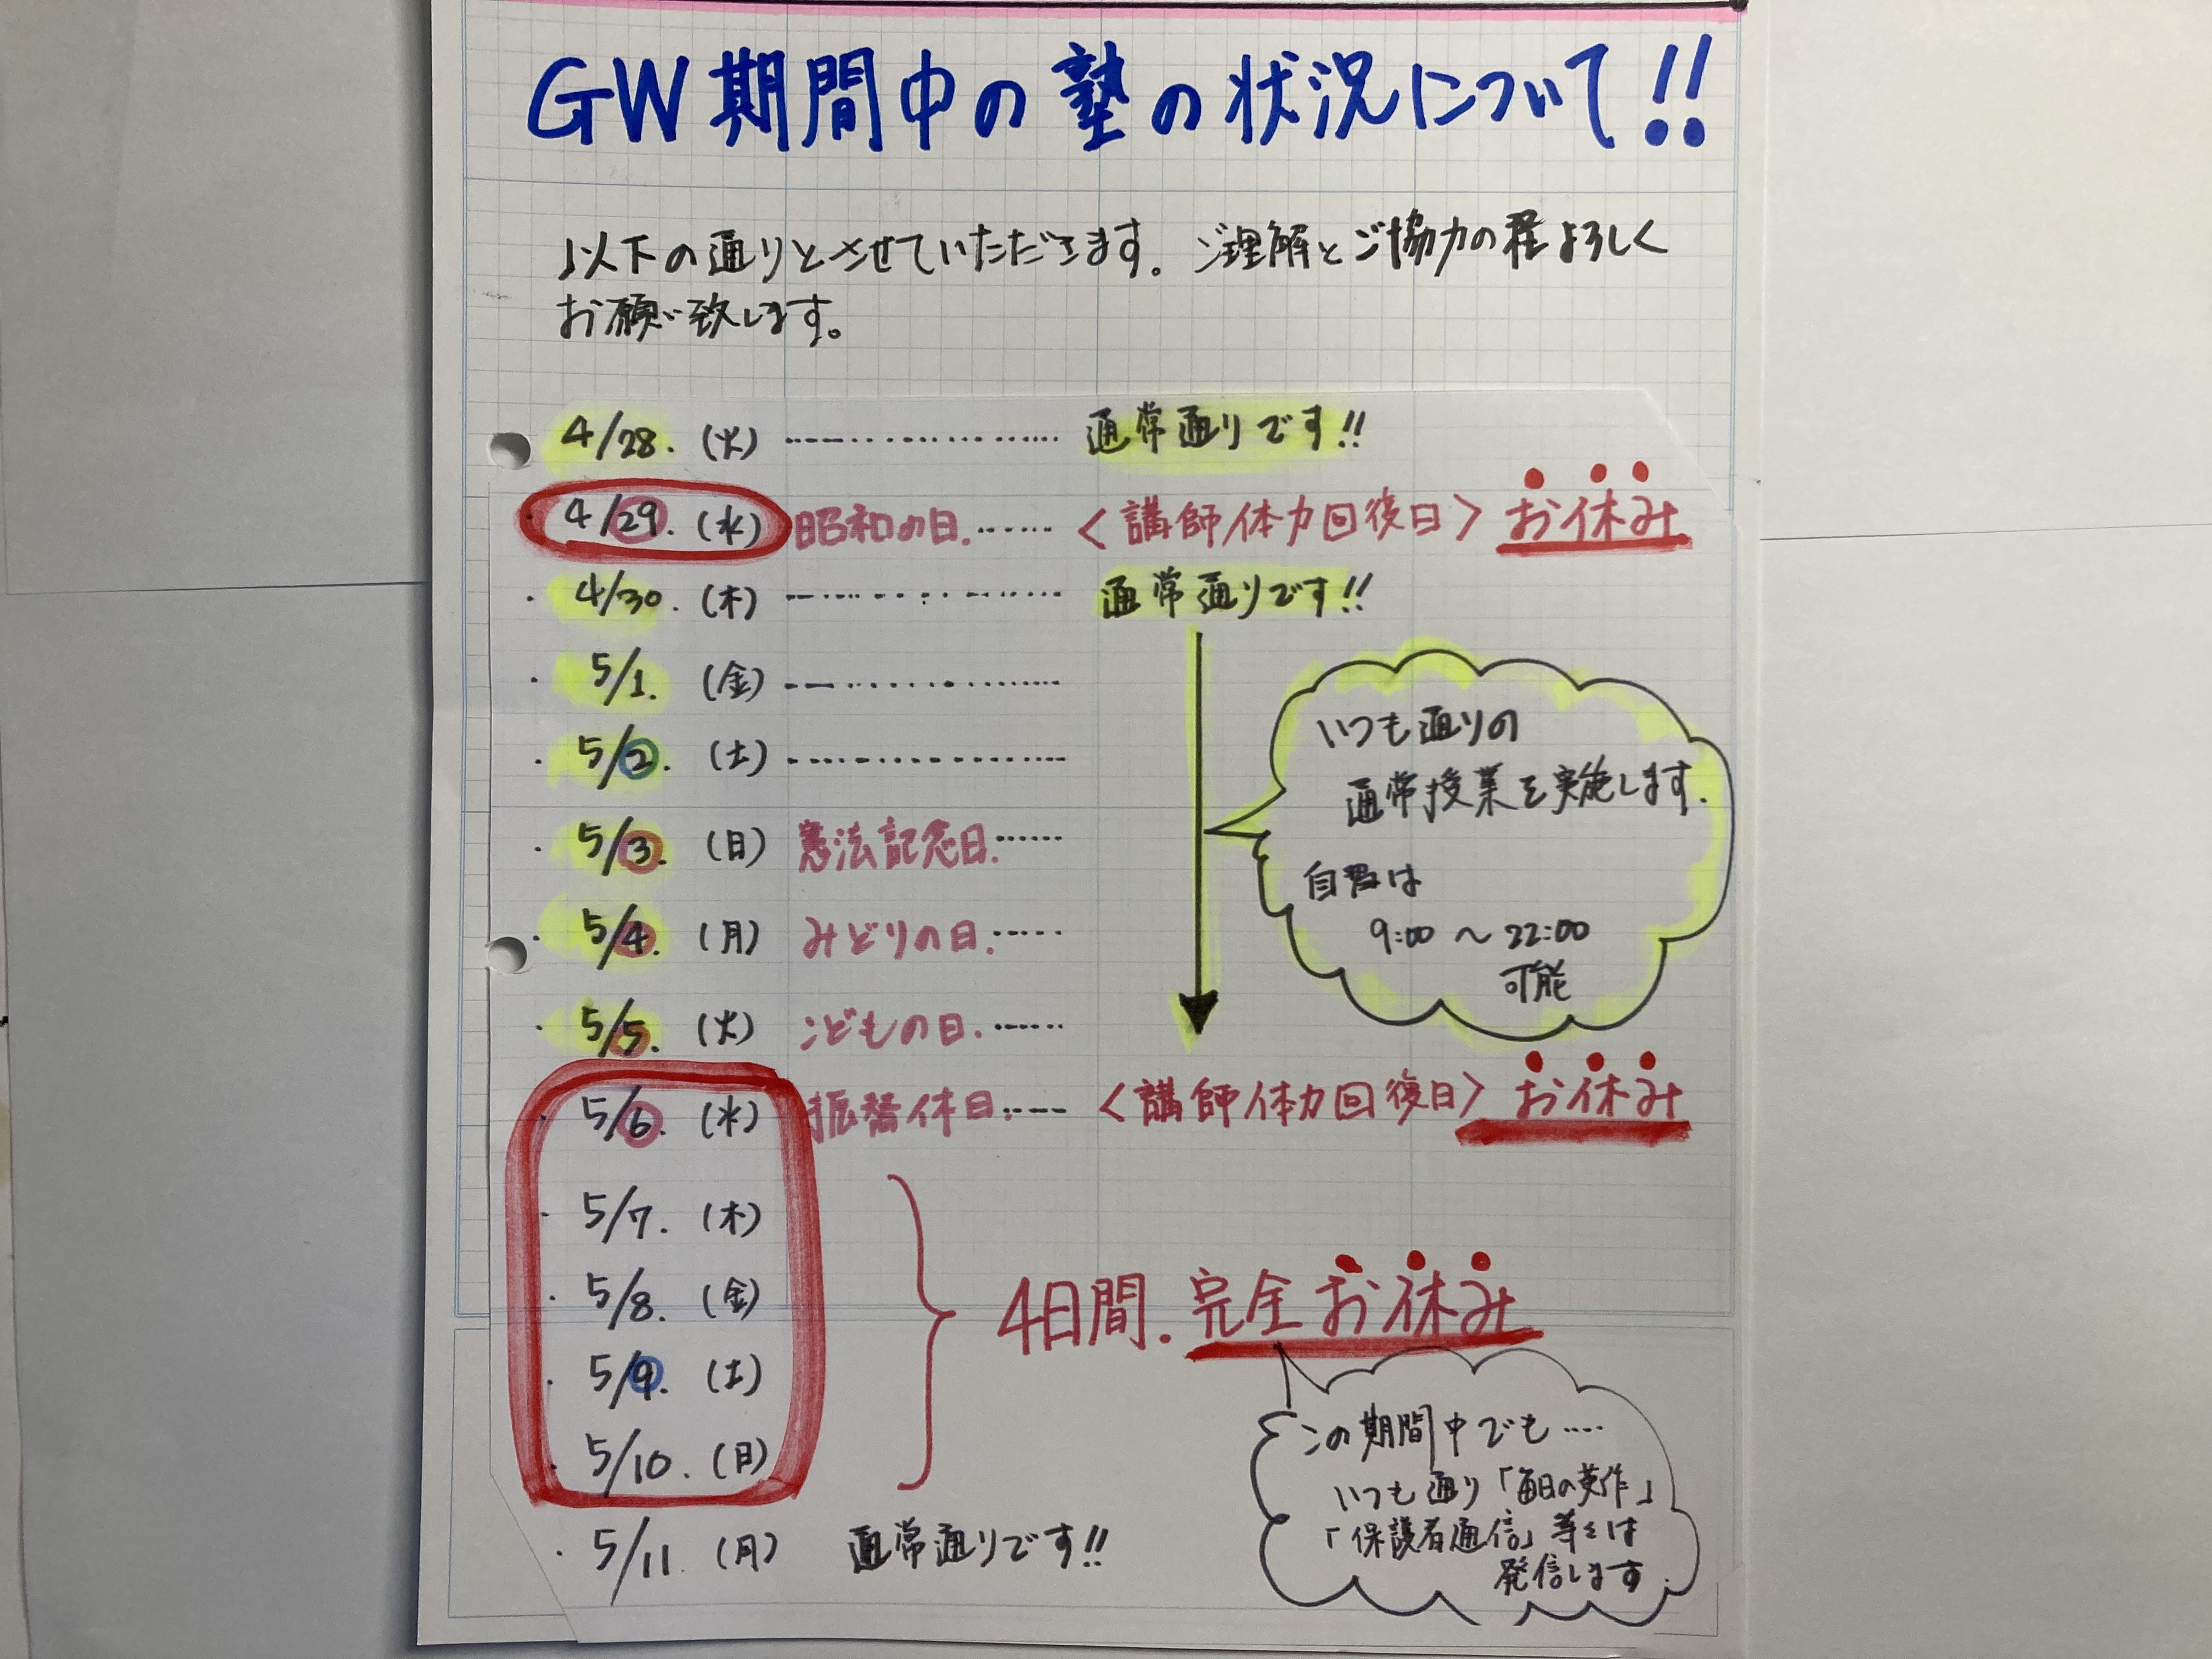 GW期間中の塾の状況について!!
以下の通りとさせていただきます。ご理解とご協力の程よろしく
お願い致します。
・4/28.(火) ………… 通常通りです!!
・4/29.(水) 昭和の日. …… <講師体力回復日> お休み
・4/30.(木) ………… 通常通りです!!
・5/1.(金) …………
・5/2.(土) …………
・5/3.(日) 憲法記念日. ……
・5/4.(月) みどりの日. ……
・5/5.(火) こどもの日. ……
いつも通りの
通常授業を実施します.
自習は
9:00 〜 22:00
可能
・5/6.(水) 振替休日. …… <講師体力回復日> お休み
・5/7.(木)
・5/8.(金)
・5/9.(土)
・5/10.(日)
4日間.完全お休み
この期間中でも……
いつも通り「毎日の英作」
「保護者通信」等々は
発信します.
・5/11.(月) 通常通りです!!